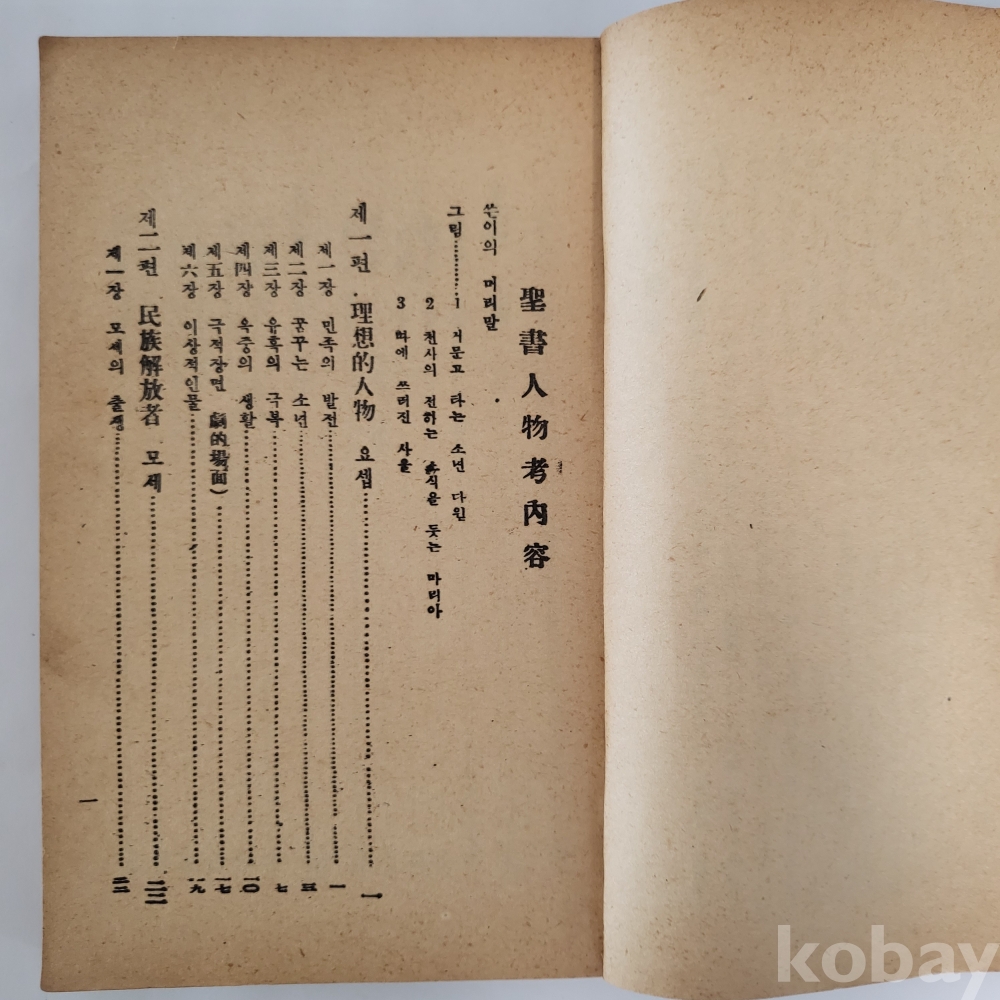 聖書人物考內容
쓴이의 머리말
그림
1 거문고 타는 소년 다윋
2 천사의 전하는 소식을 듯는 마리아
3 따에 쓰러진 사울
제一편 理想的人物 요셉 一
제一장 민족의 발전 一
제二장 꿈꾸는 소년 三
제三장 유혹의 극복 七
제四장 옥중의 생활 一〇
제五장 극적장면 劇的場面) 一七
제六장 이상적인물 一九
제二편 民族解放者 모세 二二
제一장 모세의 출생 二二
一
kobay